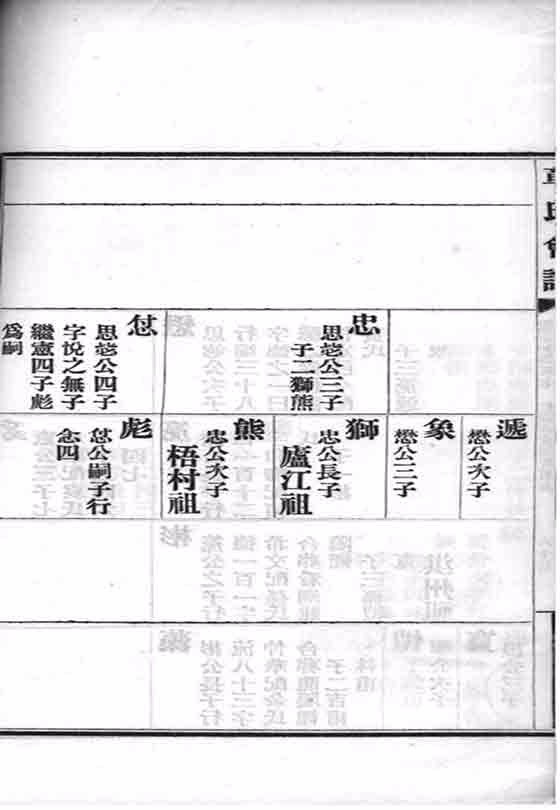 章氏會譜
忠
思𦭘公三子
于二獅熊
忿
思𦭘公四子
字悅之無子
繼憲四子彪
爲嗣
遞
懋公次子
象
懋公三子
獅
忠公長子
廬江祖
熊
忠公次子
梧村祖
彪
忿公嗣子行
念四